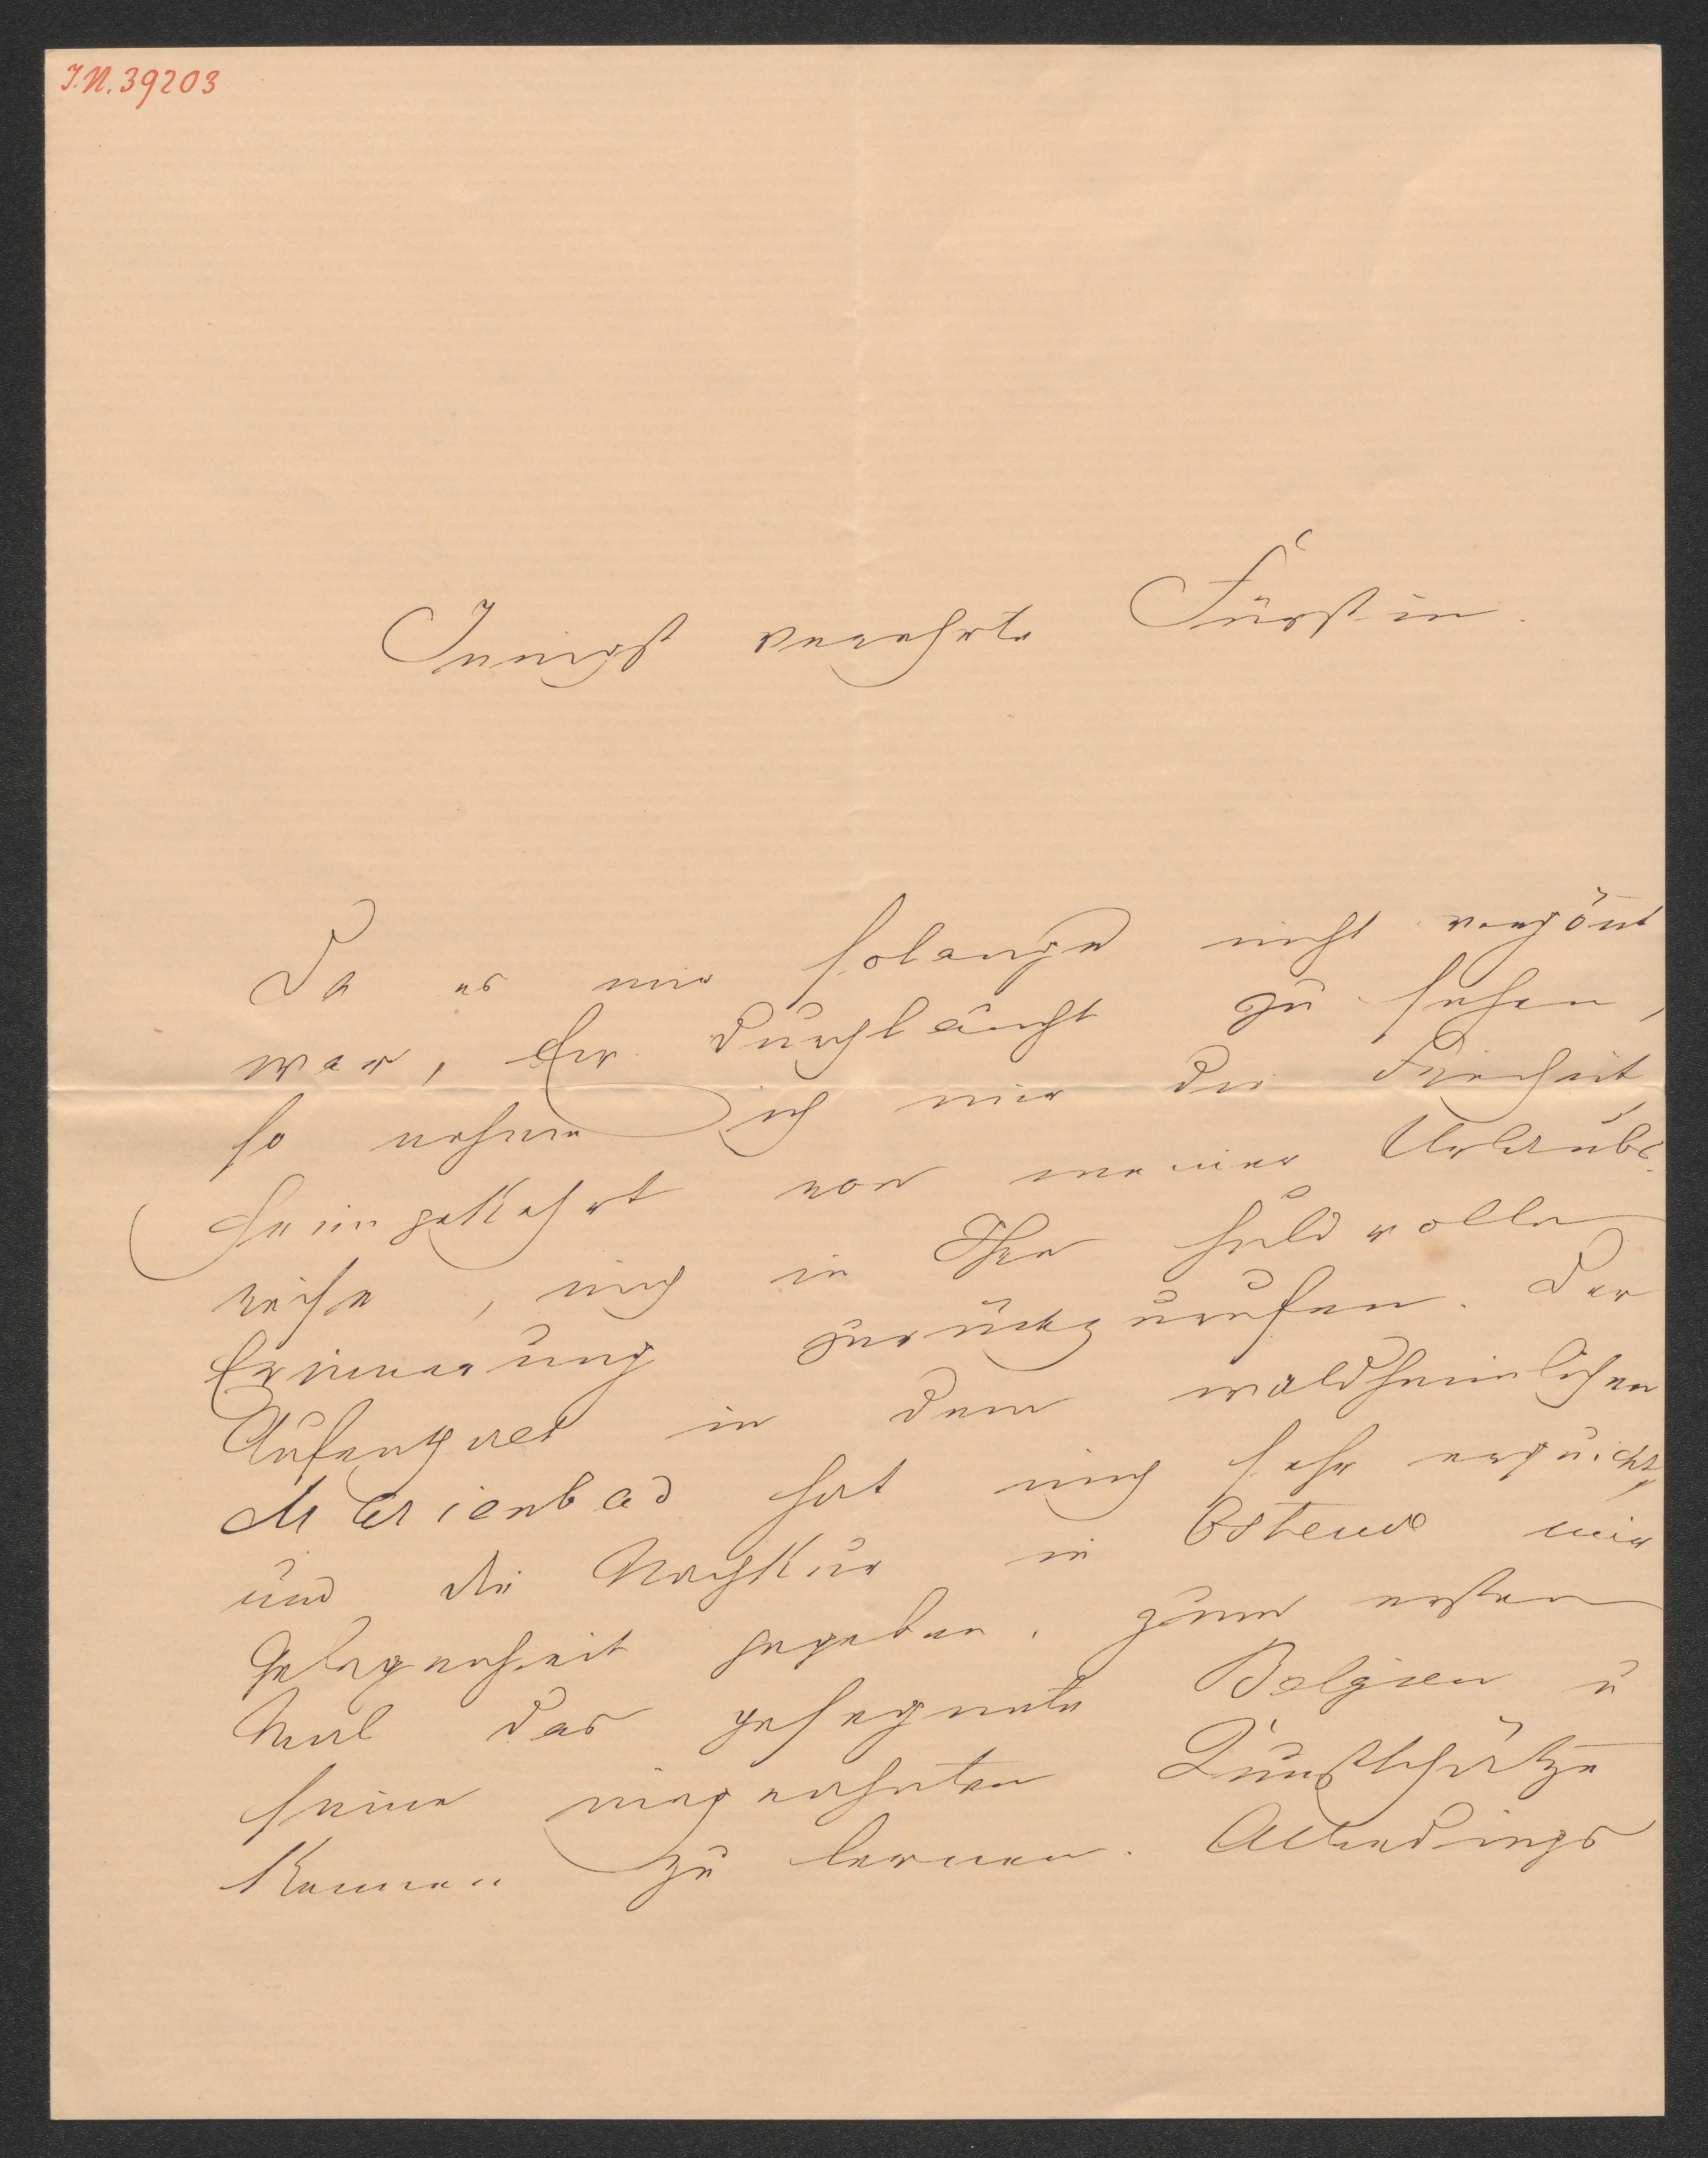 I.N. 39203
Innigst verehrte Fürstin.
Da es mir solange nicht vergönt
war, Ew. Durchlaucht zu sehen,
so nehme ich mir die Freiheit,
heimgekehrt von meiner Urlaubs-
reise, mich in Ihre huldvolle
Erinnerung zurückzurufen. Der
Aufenthalt in dem waldheimlichen
Marienbad hat mich sehr erquickt,
und die Nachkur in Ostende mir
Gelegenheit gegeben, zum ersten
Mal das gesegnete Belgien u
seine ungeahnten Kunstschätze
kennen zu lernen. Allerdings